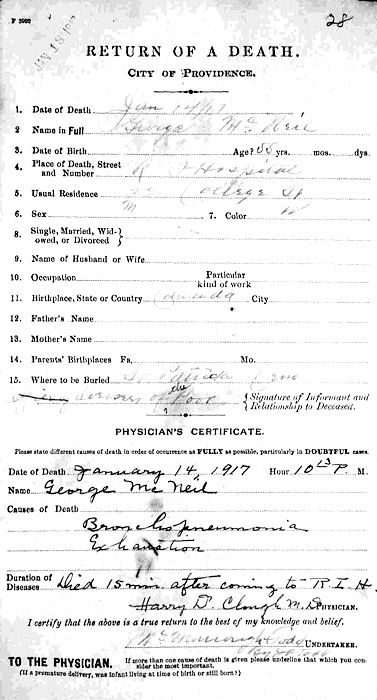 F 3992
JAN 18 1917
28
RETURN OF A DEATH.
CITY OF PROVIDENCE.
1. Date of Death Jan 14/17
2 Name in Full George McNeil
3. Date of Birth Age? 55 yrs. mos. dys.
4. Place of Death, Street and Number R I Hospital
5. Usual Residence College St
6. Sex M 7. Color W
8. Single, Married, Widowed, or Divorced
9. Name of Husband or Wife
10. Occupation Particular kind of work
11. Birthplace, State or Country Canada City
12. Father's Name
13. Mother's Name
14. Parents' Birthplaces Fa. Mo.
15. Where to be Buried St Patricks
Overseer of the Poor { Signature of Informant and Relationship to Deceased.
PHYSICIAN'S CERTIFICATE.
Please state different causes of death in order of occurence as FULLY as possible, particularly in DOUBTFUL cases.
Date of Death January 14, 1917 Hour 10 15 P. M.
Name George McNeil
Causes of Death
Bronchopneumonia
Exhaustion
Duration of Diseases Died 15 min. after coming to R.I.H.
Harry D. Clough M.D. PHYSICIAN.
I certify that the above is a true return to the best of my knowledge and belief.
UNDERTAKER.
TO THE PHYSICIAN. If more than one cause of death is given please underline that which you consider the most important.
(If a premature delivery, was infant living at time of birth or still born?)